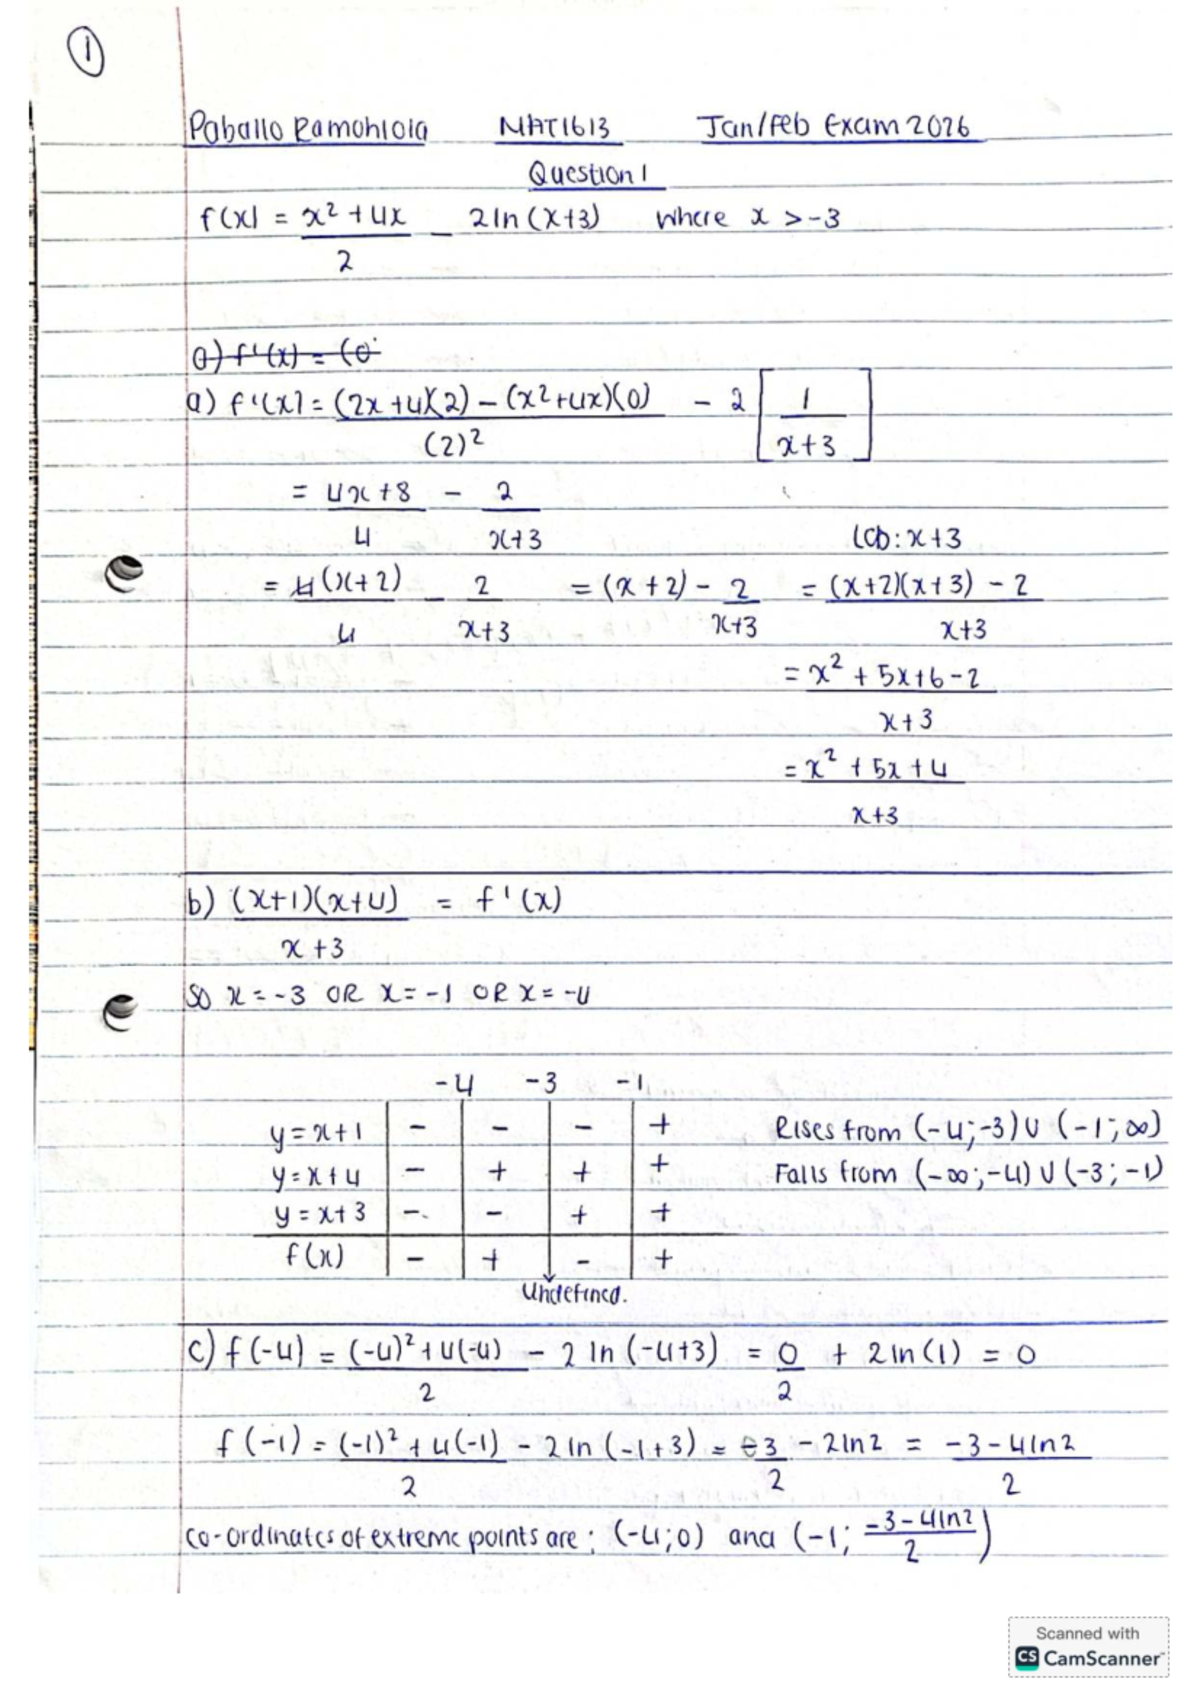 1
Paballo Ramohlola MAT1613 Jan/Feb Exam 2026
Question 1
f(x) = x² + 4x / 2 - 2ln(x+3) where x > -3
a) f'(x) = (0
a) f'(x) = (2x+4)(2) - (x²+4x)(0) / (2)² - 2[1 / x+3]
= 4x+8 / 4 - 2 / x+3 LCD: x+3
= 4(x+2) / 4 - 2 / x+3 = (x+2) - 2 / x+3 = (x+2)(x+3) - 2 / x+3
= x² + 5x+6-2 / x+3
= x² + 5x + 4 / x+3
b) (x+1)(x+4) / x+3 = f'(x)
So x = -3 OR x = -1 OR x = -4
-4 -3 -1
y = x+1 - - - + Rises from (-4;-3) ∪ (-1;∞)
y = x+4 - + + + Falls from (-∞;-4) ∪ (-3;-1)
y = x+3 - - + +
f(x) - + - +
Undefined.
c) f(-4) = (-4)² + 4(-4) / 2 - 2 ln(-4+3) = 0 / 2 + 2ln(1) = 0
f(-1) = (-1)² + 4(-1) / 2 - 2ln(-1+3) = -3 / 2 - 2ln2 = -3-4ln2 / 2
Co-ordinates of extreme points are: (-4;0) and (-1; -3-4ln2 / 2)
Scanned with
CS CamScanner